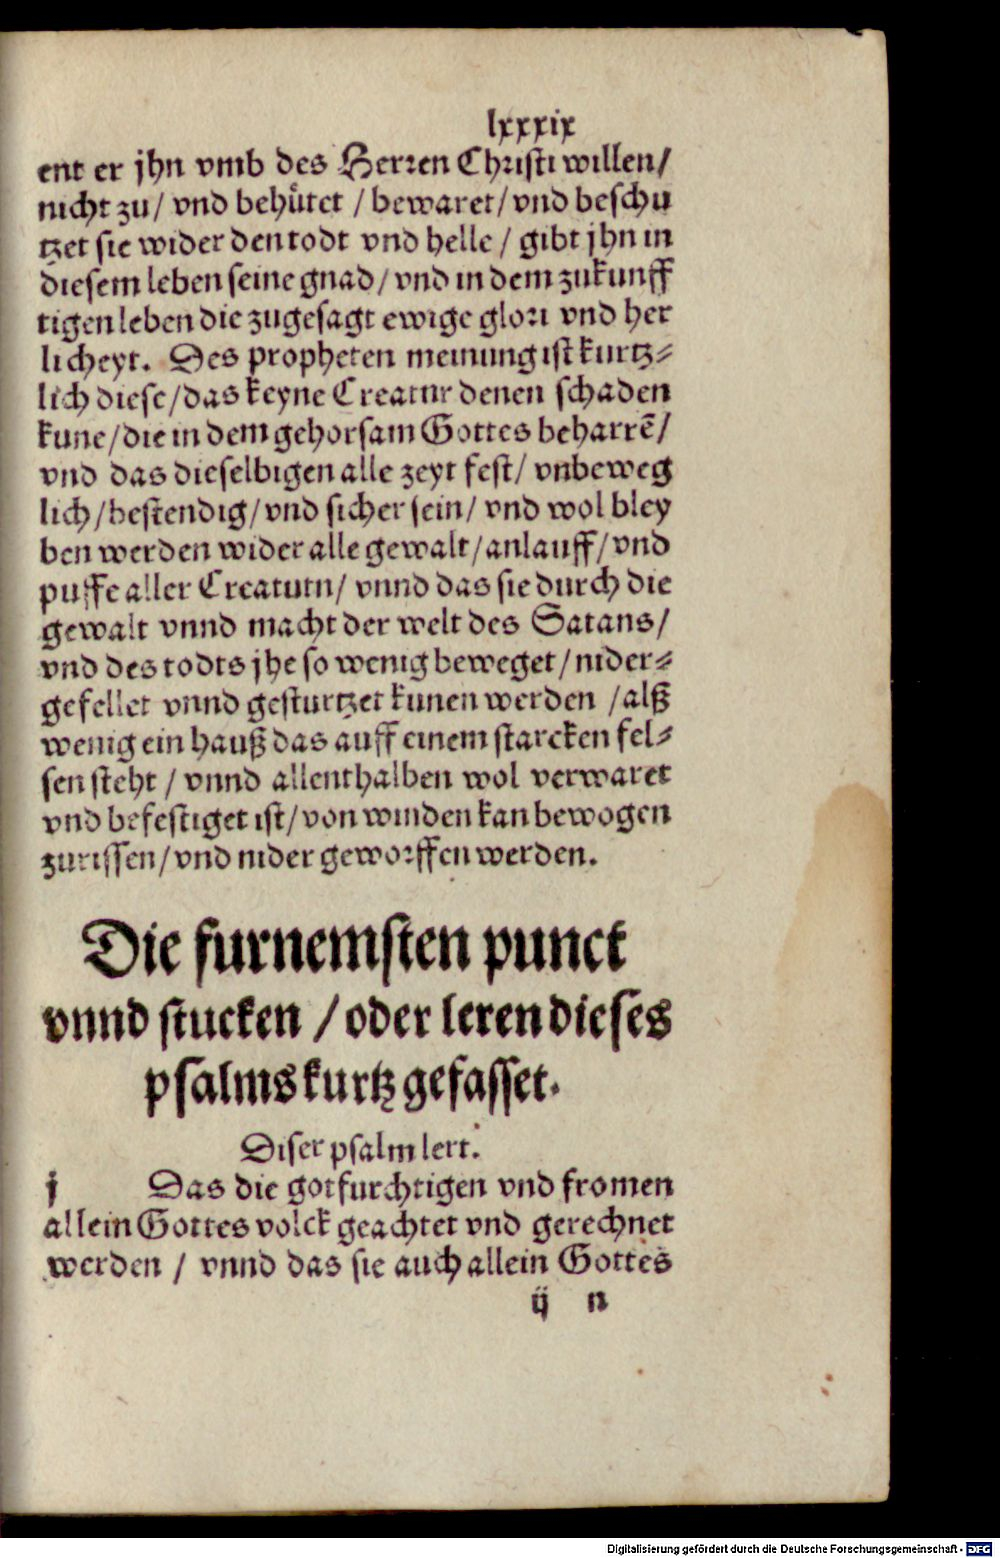 lxxxix
ent er jhn vmb des Herren Christi willen/
nicht zu/ vnd behůtet / bewaret/ vnd beschu
tzet sie wider den todt vnd helle / gibt jhn in
diesem leben seine gnad/ vnd in dem zukunff
tigen leben die zugesagt ewige glori vnd her
licheyt. Des propheten meinung ist kurtz⸗
lich diese/das keyne Creatur denen schaden
kune/die in dem gehorsam Gottes beharrẽ/
vnd das dieselbigen alle zeyt fest/ vnbeweg
lich/bestendig/vnd sicher sein/ vnd wol bley
ben werden wider alle gewalt/anlauff/vnd
puffe aller Creaturn/ vnnd das sie durch die
gewalt vnnd macht der welt des Satans/
vnd des todts jhe so wenig beweget/nider⸗
gefellet vnnd gesturtzet kunen werden /alß
wenig ein hauß das auff einem starcken fel⸗
sen steht / vnnd allenthalben wol verwaret
vnd befestiget ist/von winden kan bewogen
zurissen/vnd nider geworffen werden.
Die furnemsten punct
vnnd stucken /oder leren dieses
psalms kurtz gefasset.
Diser psalm lert.
j Das die gotfurchtigen vnd fromen
allein Gottes volck geachtet vnd gerechnet
werden / vnnd das sie auch allein Gottes
ij n
Digitalisierung gefördert durch die Deutsche Forschungsgemeinschaft - DFG